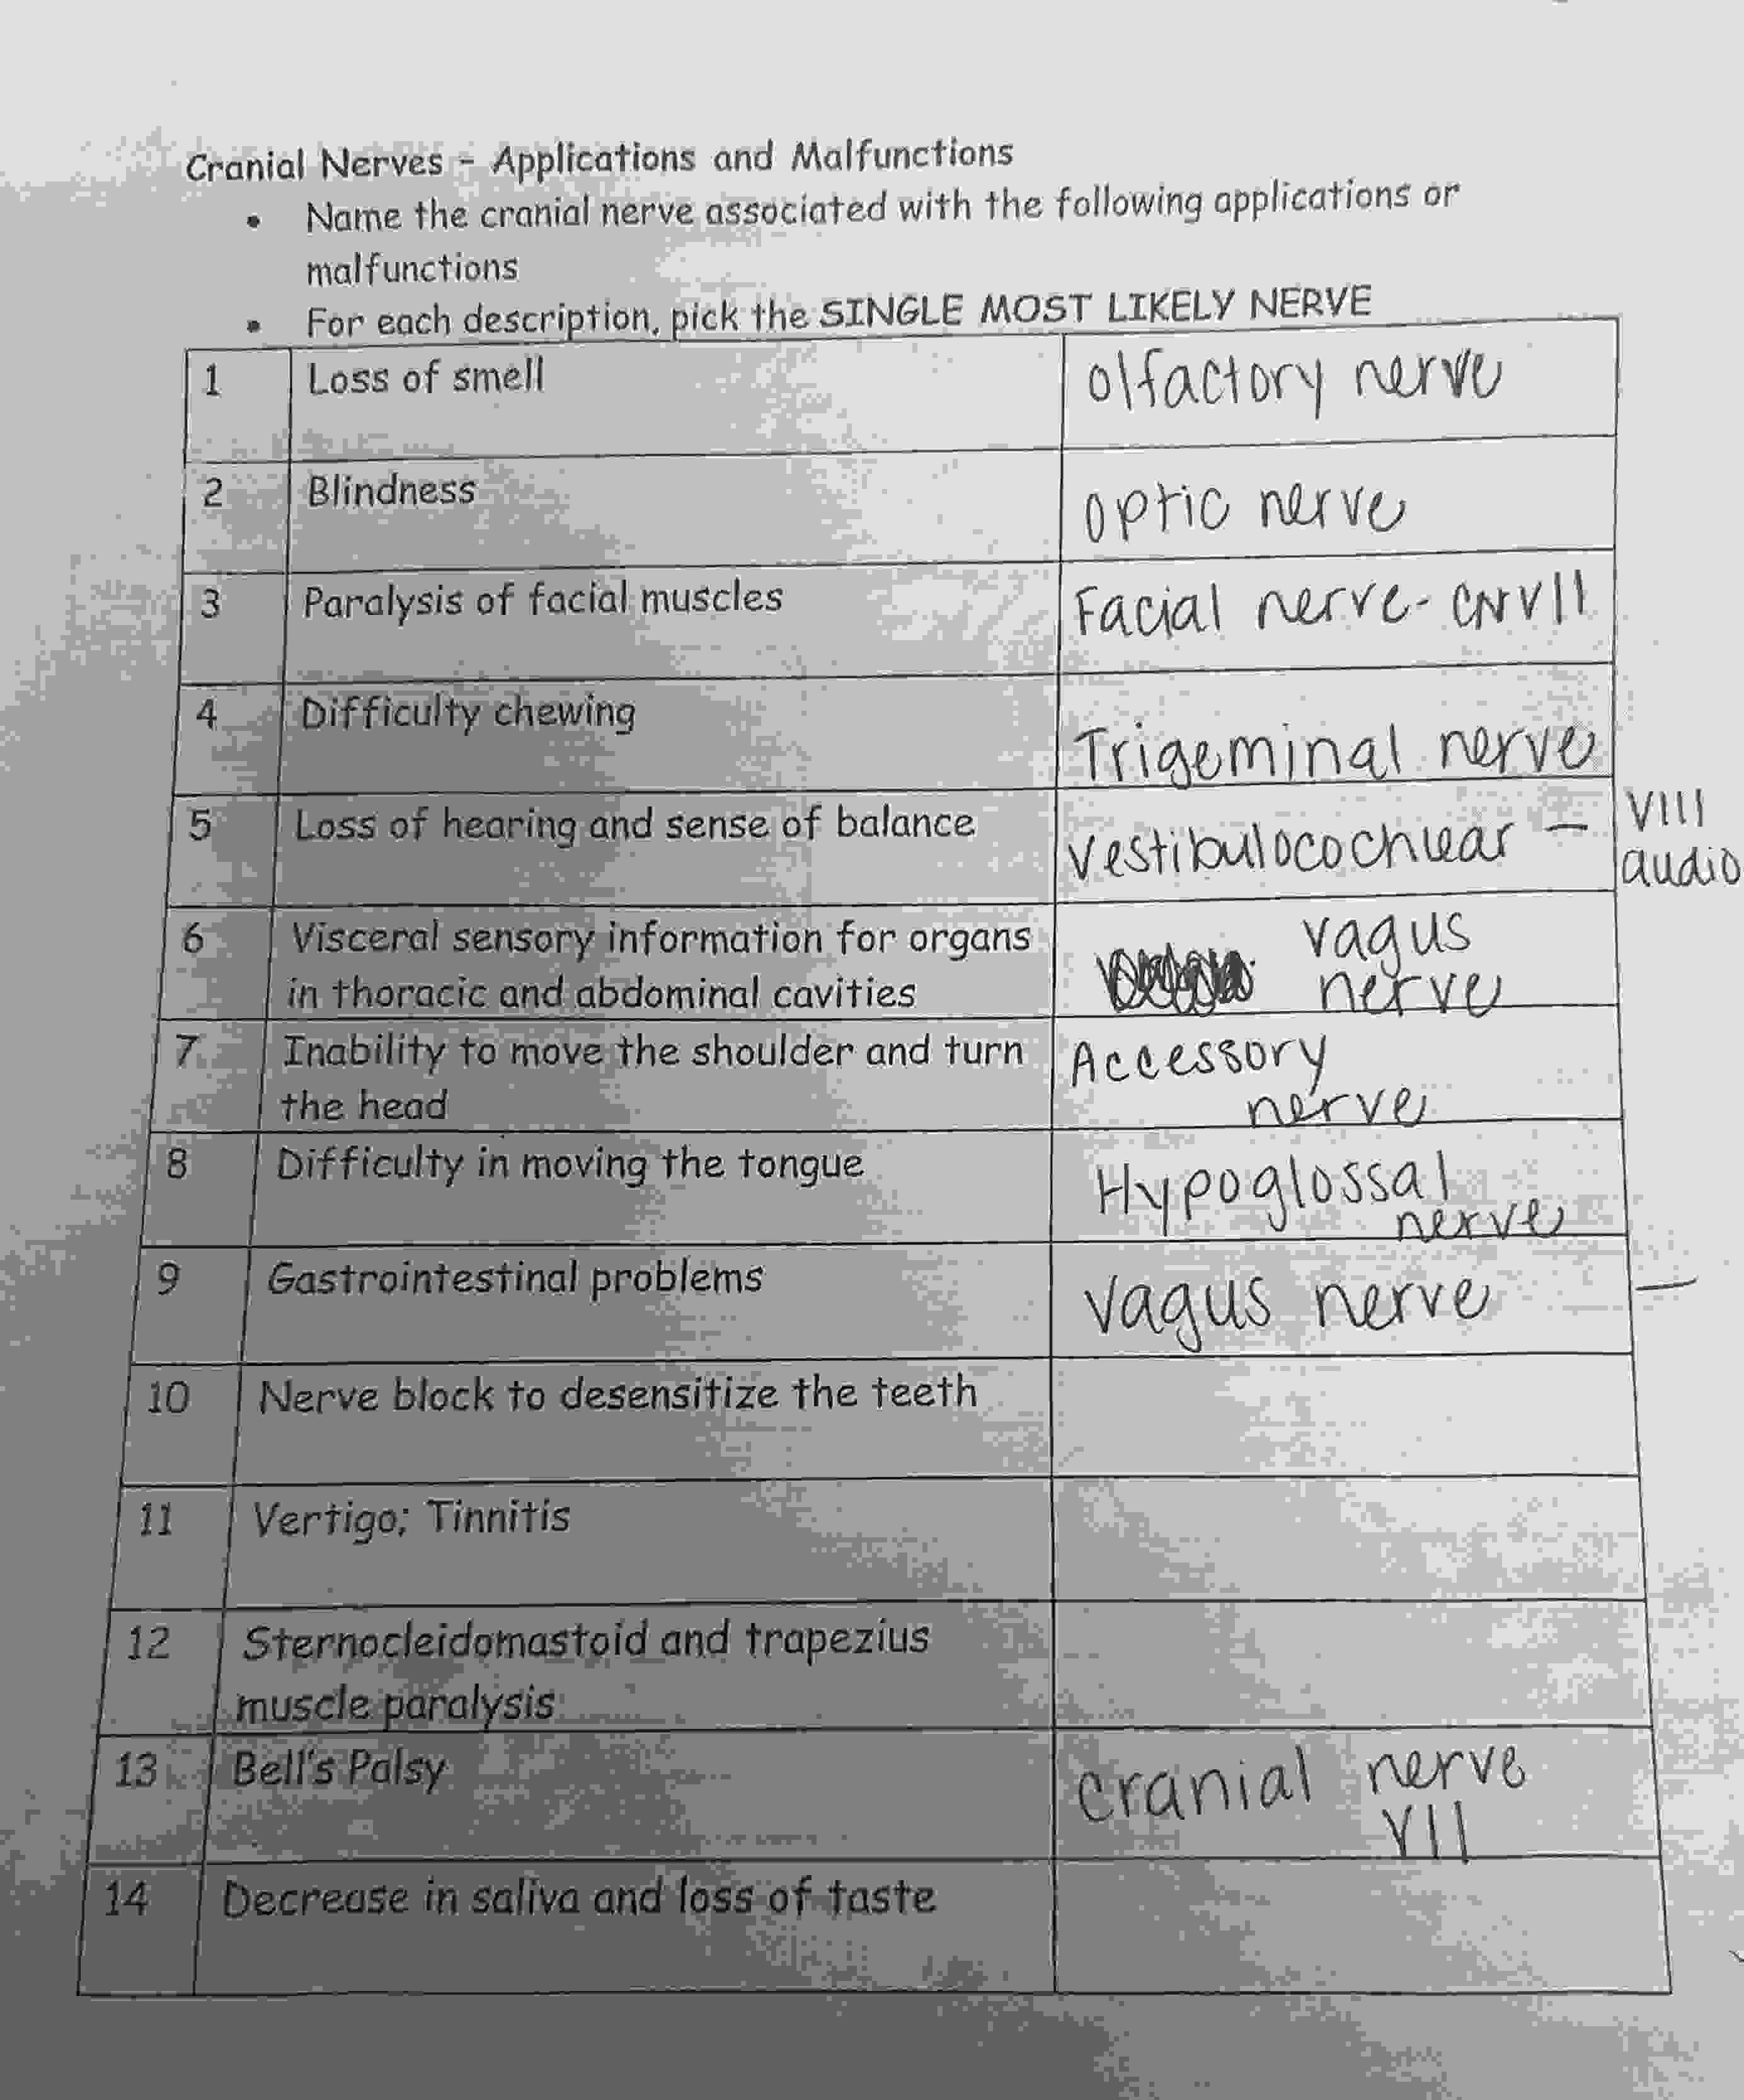 Cranial Nerves - Applications and Malfunctions
• Name the cranial nerve associated with the following applications or
malfunctions
• For each description, pick the SINGLE MOST LIKELY NERVE
1 Loss of smell olfactory nerve
2 Blindness optic nerve
3 Paralysis of facial muscles Facial nerve - CN VII
4 Difficulty chewing Trigeminal nerve
5 Loss of hearing and sense of balance vestibulocochlear — VIII
audio
6 Visceral sensory information for organs vagus
in thoracic and abdominal cavities nerve
7 Inability to move the shoulder and turn Accessory
the head nerve
8 Difficulty in moving the tongue Hypoglossal
nerve
9 Gastrointestinal problems vagus nerve —
10 Nerve block to desensitize the teeth
11 Vertigo; Tinnitis
12 Sternocleidomastoid and trapezius
muscle paralysis
13 Bell's Palsy cranial nerve
VII
14 Decrease in saliva and loss of taste